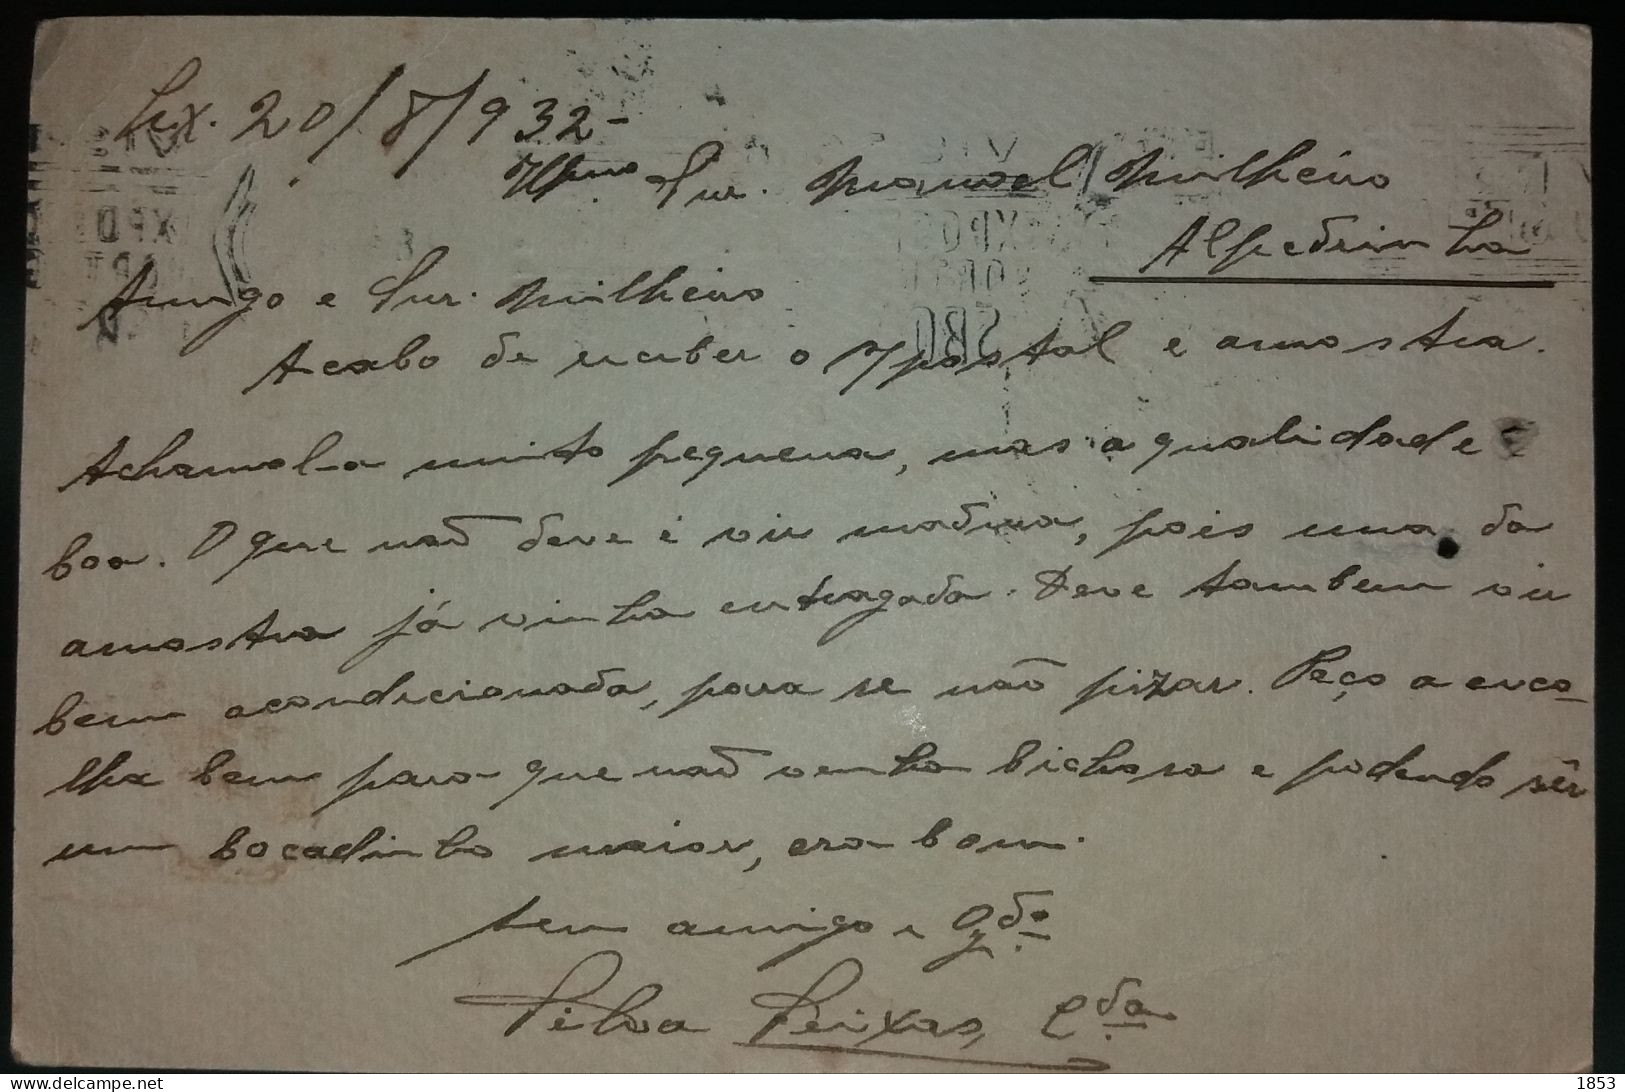 Lix. 20/8/932-
Illmo Snr. Manoel Milheiro
Alpedrinha
Amigo e Snr. Milheiro
Acabo de receber o /postal e amostra.
Achamol-a muito pequena, mas a qualidade é
boa. O que não deve é vir madura, pois uma da
amostra já vinha entragada. Deve tambem vir
bem acondicionada, para se não pizar. Peço a esco-
lha bem para que não venha bichosa e podendo sêr
um bocadinho maior, era bom.
Seu amigo e Ogdo
Silva Seixas, Lda
delcampe.net
1853